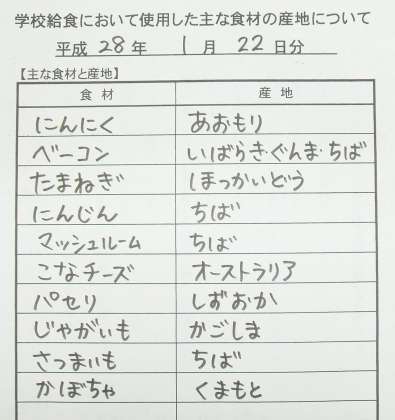 学校給食において使用した主な食材の産地について
平成 28 年 1 月 22 日分
【主な食材と産地】
食材 産地
にんにく あおもり
ベーコン いばらき・ぐんま・ちば
たまねぎ ほっかいどう
にんじん ちば
マッシュルーム ちば
こなチーズ オーストラリア
パセリ しずおか
じゃがいも かごしま
さつまいも ちば
かぼちゃ くまもと